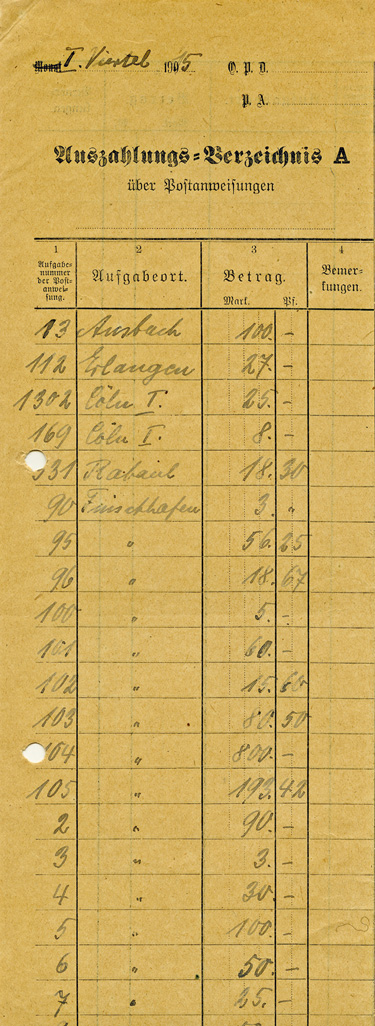 Monat I. Viertel 1905 O. P. D.
P. A.
Auszahlungs-Verzeichnis A
über Postanweisungen
1 2 3 4
Aufgabe-
nummer
der Post-
anwei-
sung.
Aufgabeort.
Betrag.
Mark. Pf.
Bemer-
kungen.
13 Ansbach 100. –
112 Erlangen 27. –
1302 Cöln I. 25. –
169 Cöln I. 8. –
531 Rabaul 18. 30
90 Finschhafen 3. "
95 " 56. 25
96 " 18. 67
100 " 5. –
101 " 60. –
102 " 15. 60
103 " 80. 50
104 " 800. –
105 " 193. 42
2 " 90. –
3 " 3. –
4 " 30. –
5 " 100. –
6 " 50. –
7 " 25. –